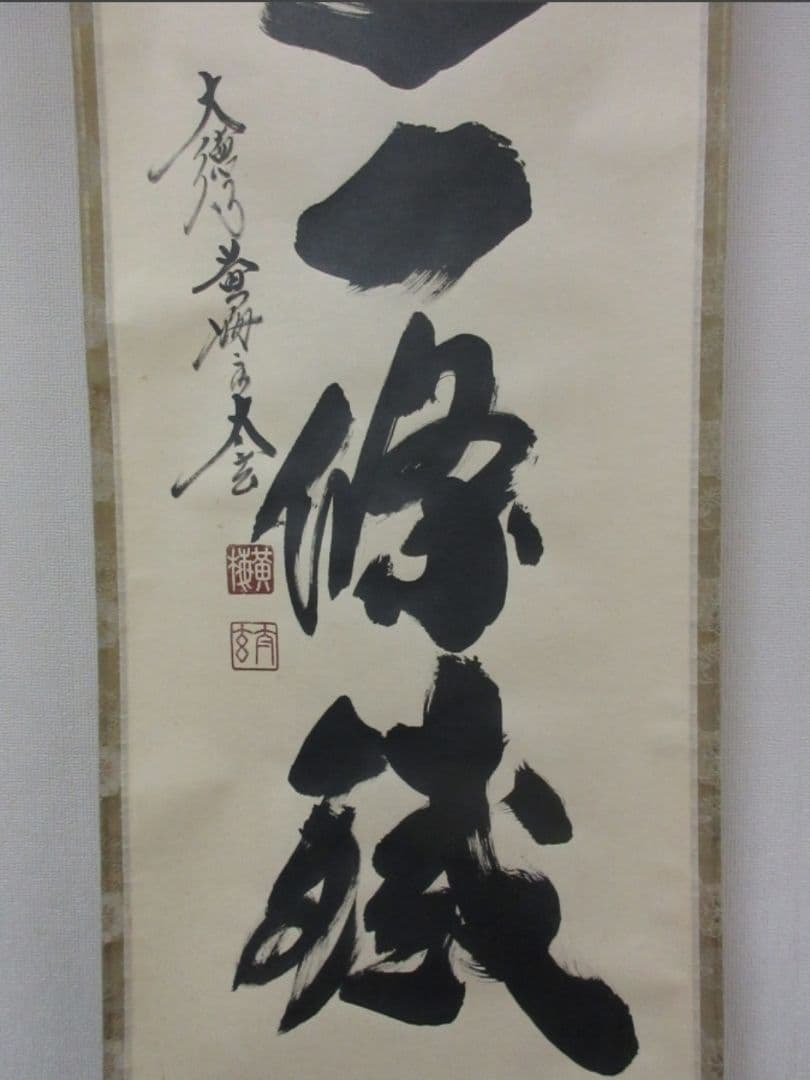 一條鐵
大徳寺黄梅太玄
黄梅
太玄